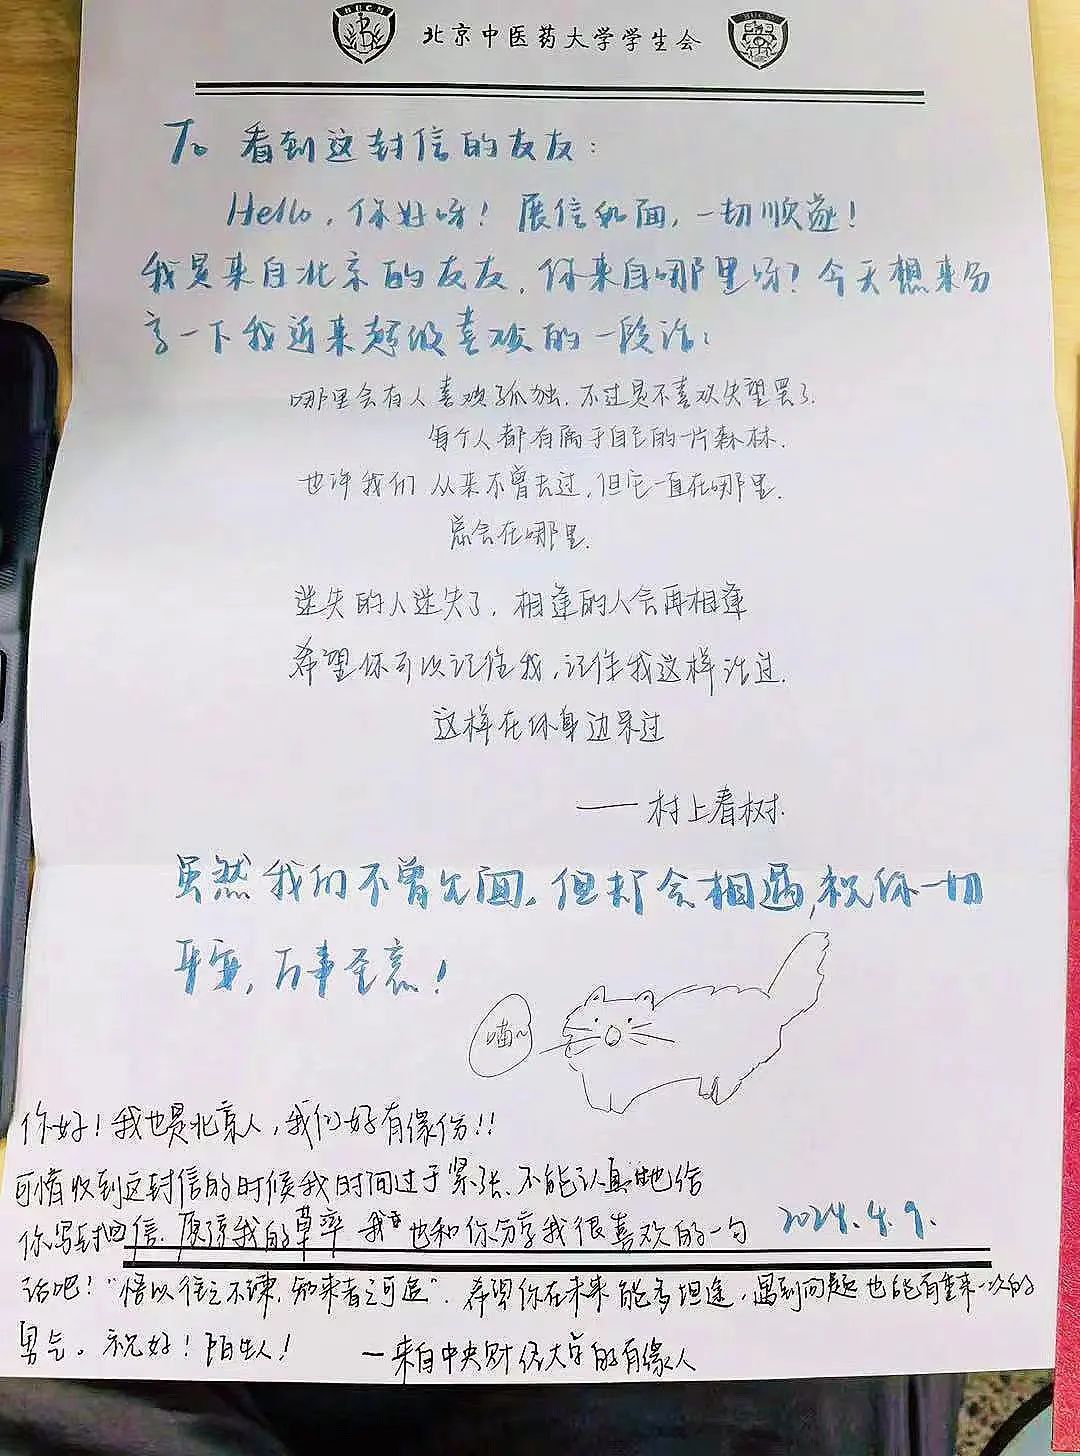 BUCM 北京中医药大学学生会 BUCM
To 看到这封信的友友:
Hello，你好呀！展信如面，一切顺遂！
我是来自北京的友友，你来自哪里呀？今天想来分
享一下我近来超级喜欢的一段话：
哪里会有人喜欢孤独，不过是不喜欢失望罢了.
每个人都有属于自己的一片森林.
也许我们 从来不曾去过，但它一直在哪里.
总会在哪里.
迷失的人迷失了，相逢的人会再相逢
希望你可以记住我，记住我这样活过.
这样在你身边呆过
——村上春树.
虽然我们不曾见面，但却会相遇，祝你一切
平安，万事至意！
喵~
你好！我也是北京人，我们好有缘份!!
可惜收到这封信的时候我时间过于紧张、不能认真地给
你写封回信，原谅我的草率 我也和你分享我很喜欢的一句
2024.4.9.
话吧！"悟以往之不谏，知来者之可追"．希望你在未来能多坦途，遇到问题也能有重来一次的
勇气。祝好！陌生人！
—来自中央财经大学的有缘人